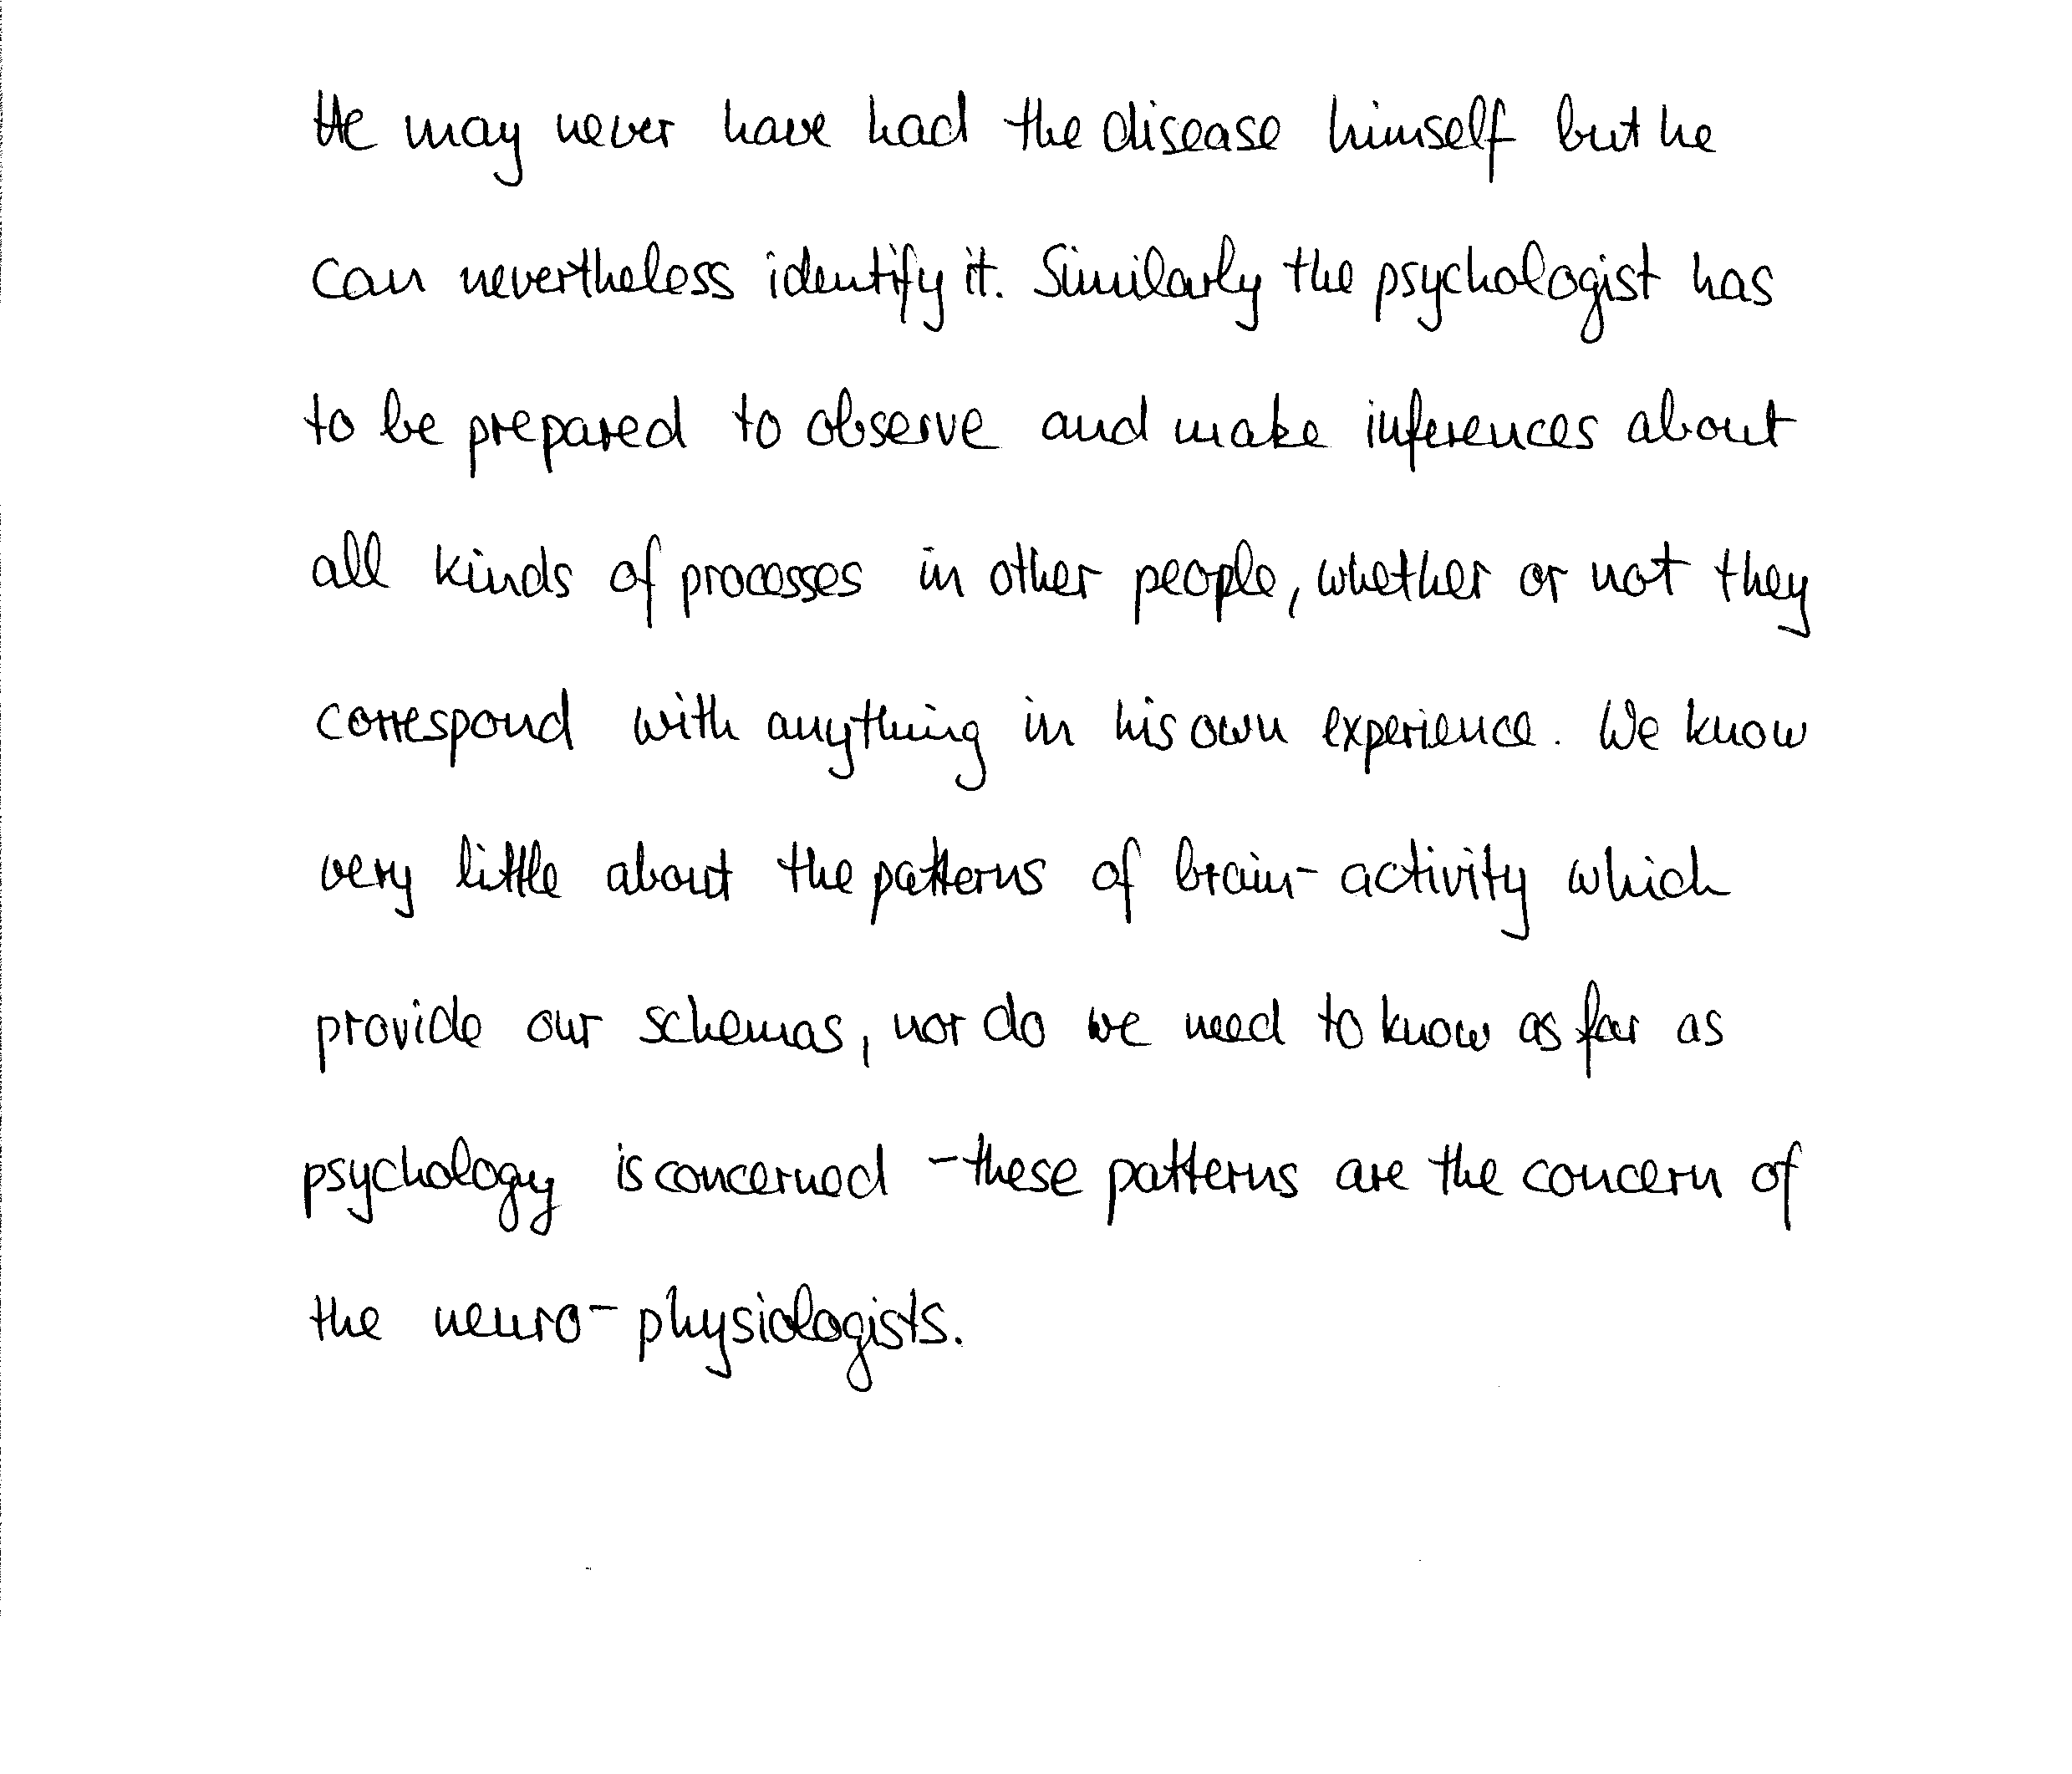 He may never have had the disease himself but he
can nevertheless identify it. Similarly the psychologist has
to be prepared to observe and make inferences about
all kinds of processes in other people, whether or not they
correspond with anything in his own experience. We know
very little about the patterns of brain-activity which
provide our schemas, nor do we need to know as far as
psychology is concerned - these patterns are the concern of
the neuro-physiologists.